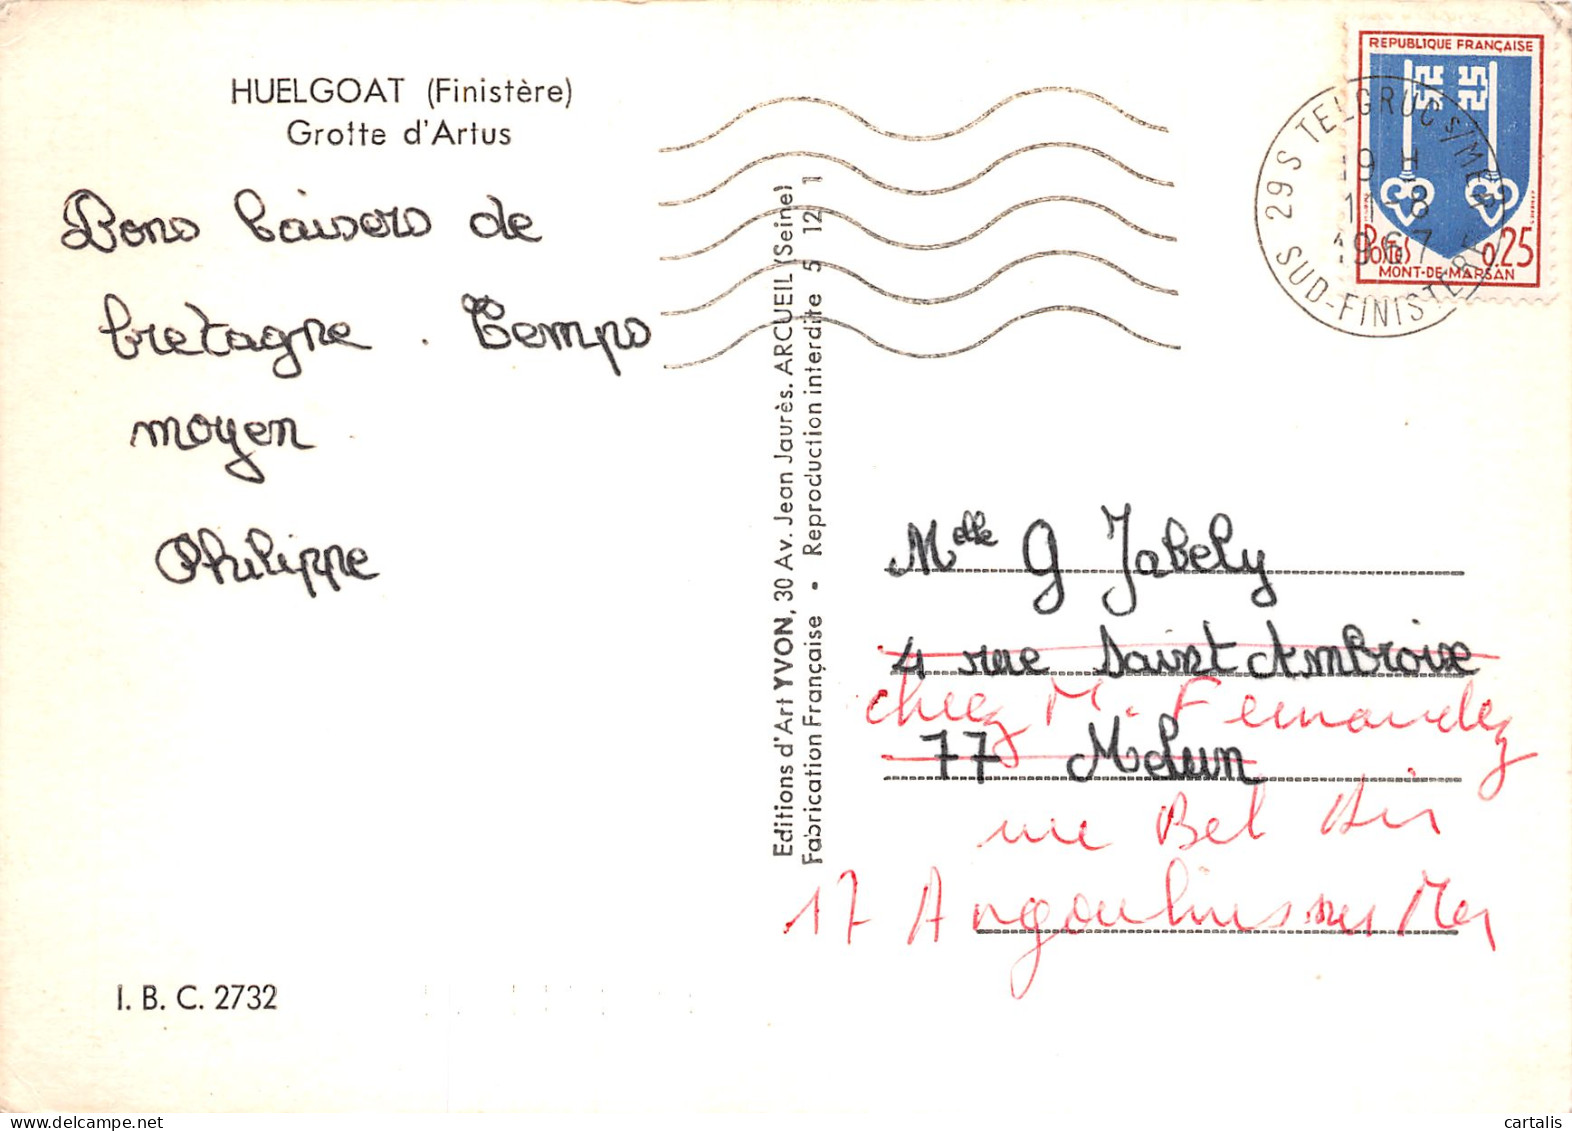 HUELGOAT (Finistère)
Grotte d'Artus
Bons baisers de
bretagne. Temps
moyen
Philippe
I. B. C. 2732
Editions d'Art YVON, 30 Av. Jean Jaurès. ARCUEIL (Seine)
Fabrication Française • Reproduction interdite 5 12 1
REPUBLIQUE FRANÇAISE
POSTES 0,25
MONT-DE-MARSAN
29S TELGRUC s/MER
19 H
11-8
1967
SUD-FINISTERE
Melle G Jabely
4 rue Saint Ambroise
chez M. Fernandez
77 Melun
rue Bel Air
17 Angoulins sur Mer
cartalis